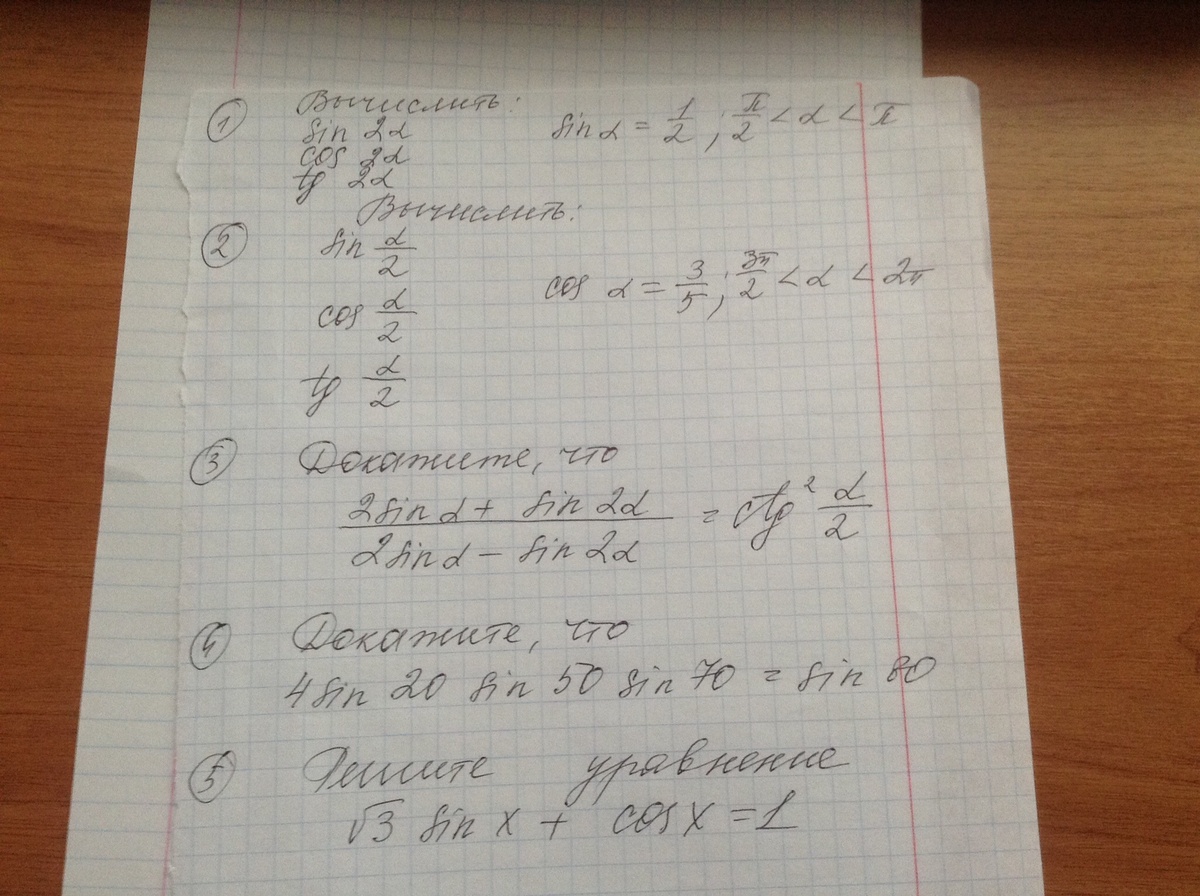 ① Вычислить:
sin 2α    sin α = 1/2 ; π/2 < α < π
cos 2α
tg 2α
Вычислить:
② sin α/2
cos α/2    cos α = 3/5 ; 3π/2 < α < 2π
tg α/2
③ Докажите, что
(2sin α + sin 2α)/(2sin α − sin 2α) = ctg² α/2
④ Докажите, что
4 sin 20 sin 50 sin 70 = sin 80
⑤ Решите уравнение
√3 sin x + cos x = 1